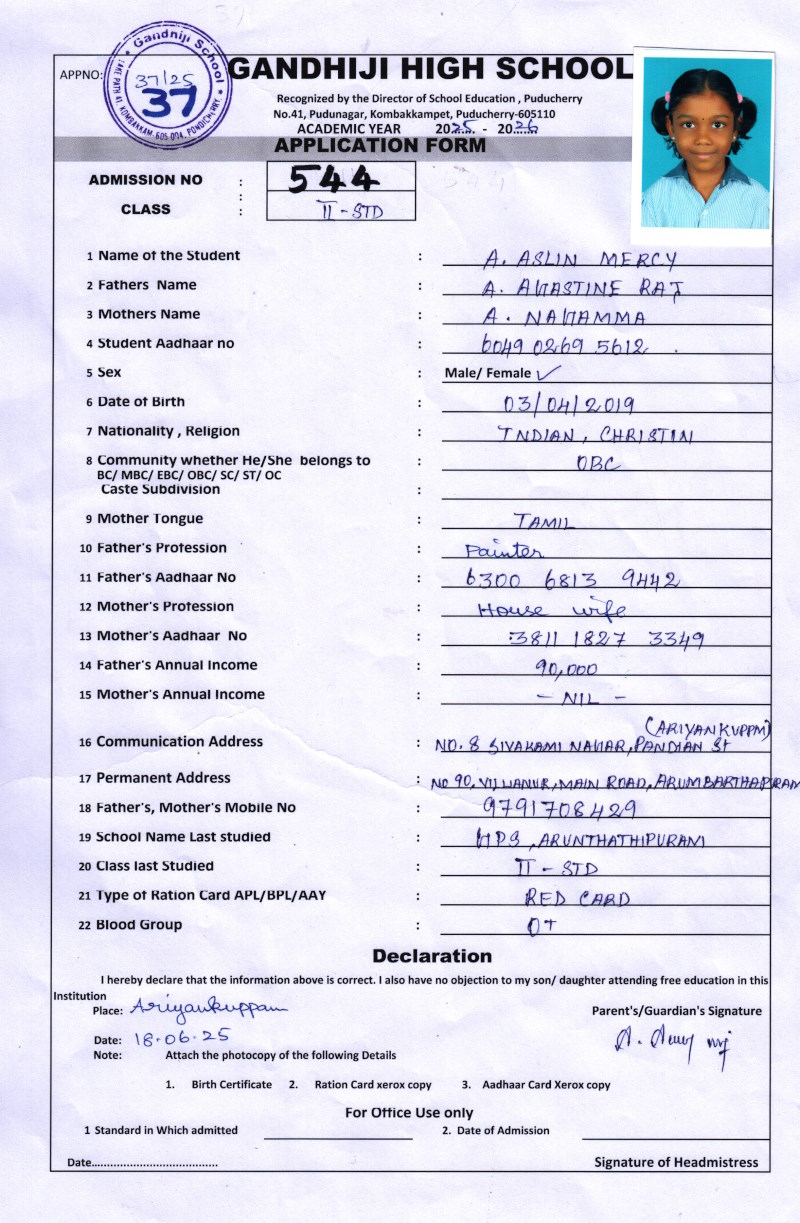 Gandhiji School
LAKE PATH 41, KOMBAKKAM-605 004, PONDICHERRY.
APPNO: 37/25
37
GANDHIJI HIGH SCHOOL
Recognized by the Director of School Education , Puducherry
No.41, Pudunagar, Kombakkampet, Puducherry-605110
ACADEMIC YEAR 2025 - 2026
APPLICATION FORM
ADMISSION NO : 544
CLASS : II - STD
1 Name of the Student : A. ASLIN MERCY
2 Fathers Name : A. AGASTINE RAJ
3 Mothers Name : A. NAGAMMA
4 Student Aadhaar no : 6049 0269 5612
5 Sex : Male/ Female ✓
6 Date of Birth : 03/04/2019
7 Nationality , Religion : INDIAN, CHRISTIN
8 Community whether He/She belongs to : OBC
BC/ MBC/ EBC/ OBC/ SC/ ST/ OC
Caste Subdivision :
9 Mother Tongue : TAMIL
10 Father's Profession : Painter
11 Father's Aadhaar No : 6300 6813 9442
12 Mother's Profession : House wife
13 Mother's Aadhaar No : 3811 1827 3349
14 Father's Annual Income : 90,000
15 Mother's Annual Income : - NIL -
(ARIYANKUPPM)
16 Communication Address : NO. 8 SIVAKAMI NAGAR, PANDIAN St
17 Permanent Address : NO 90, VILLIANUR, MAIN ROAD, ARUMBARTHAPURAM
18 Father's, Mother's Mobile No : 9791708429
19 School Name Last studied : GPS, ARUNTHATHIPURAM
20 Class last Studied : II - STD
21 Type of Ration Card APL/BPL/AAY : RED CARD
22 Blood Group : O+
Declaration
I hereby declare that the information above is correct. I also have no objection to my son/ daughter attending free education in this
Institution
Place: Ariyankuppam
Parent's/Guardian's Signature
Date: 18.06.25
Note: Attach the photocopy of the following Details
1. Birth Certificate 2. Ration Card xerox copy 3. Aadhaar Card Xerox copy
For Office Use only
1 Standard in Which admitted 2. Date of Admission
Date.......................................... Signature of Headmistress